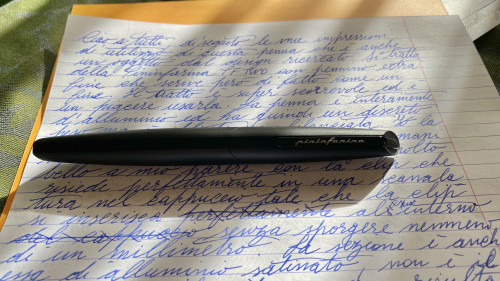 Ciao a tutti, di seguito le mie impressioni
di utilizzo di questa penna che è anche
un oggetto dal design ricercato si tratta
della Pininfarina PF Two con pennino extra
fine che scrive però di fatto come un
fine. Il tatto è super scorrevole ed è
un piacere usarla. La penna è interamente
d'alluminio ed ha quindi un discreto
la
mani
pininfarina
molto
bello a mio parere con la clip che
risiede perfettamente in una scanala
tura nel cappuccio tale che la clip
si inserisca perfettamente all'interno
del cappuccio senza sporgere nemmeno
di un millimetro. La sezione è anch
essa di alluminio satinato, non è il